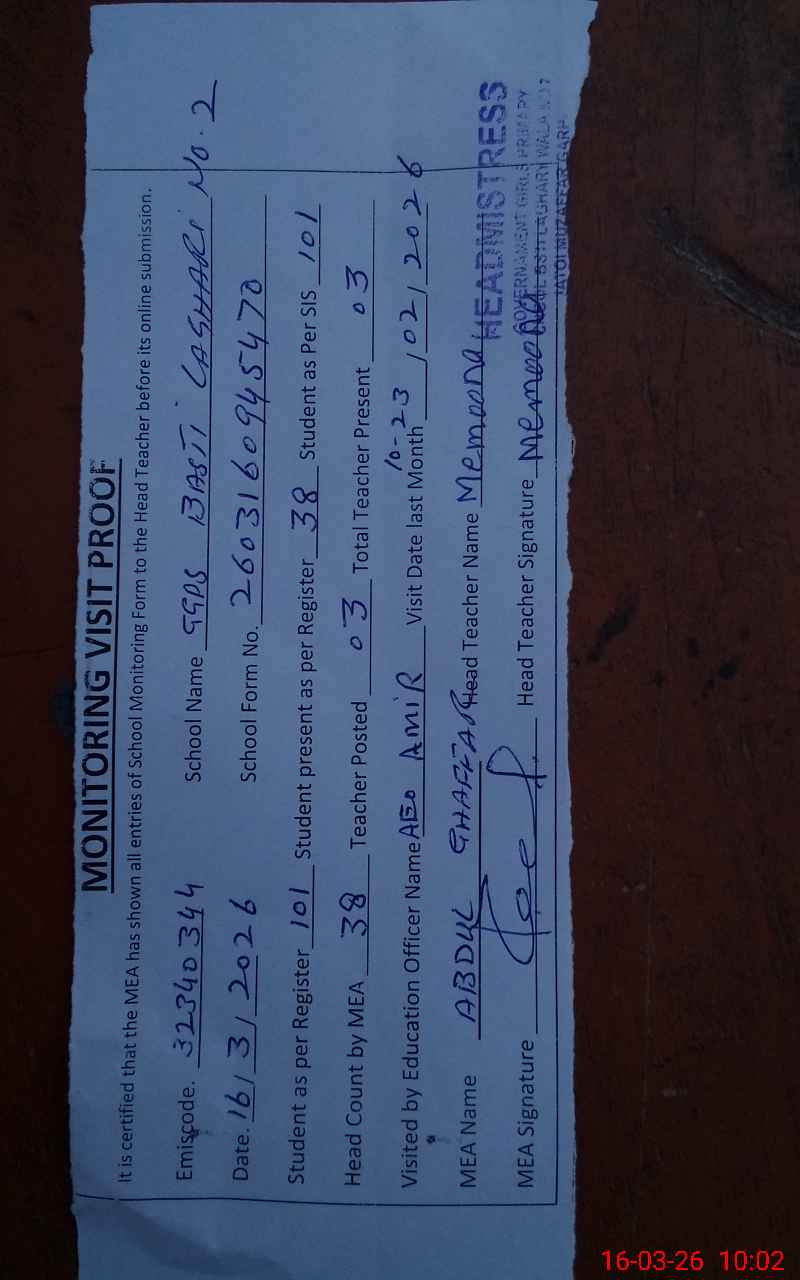 MONITORING VISIT PROOF
It is certified that the MEA has shown all entries of School Monitoring Form to the Head Teacher before its online submission.
Emiscode. 32340344 School Name GGPS BASTI LASHARI No. 2
Date. 16/3/2026 School Form No. 260316094547​0
Student as per Register 101 Student present as per Register 38 Student as Per SIS 101
Head Count by MEA 38 Teacher Posted 03 Total Teacher Present 03
Visited by Education Officer Name AEO AMIR Visit Date last Month 10-23/02/2026
MEA Name ABDUL GHAFFAR Head Teacher Name Memoona
MEA Signature Head Teacher Signature Memoona
HEADMISTRESS
GOVERNAMENT GIRLS PRIMARY
JATOI MUZAFFAR GARH
16-03-26 10:02